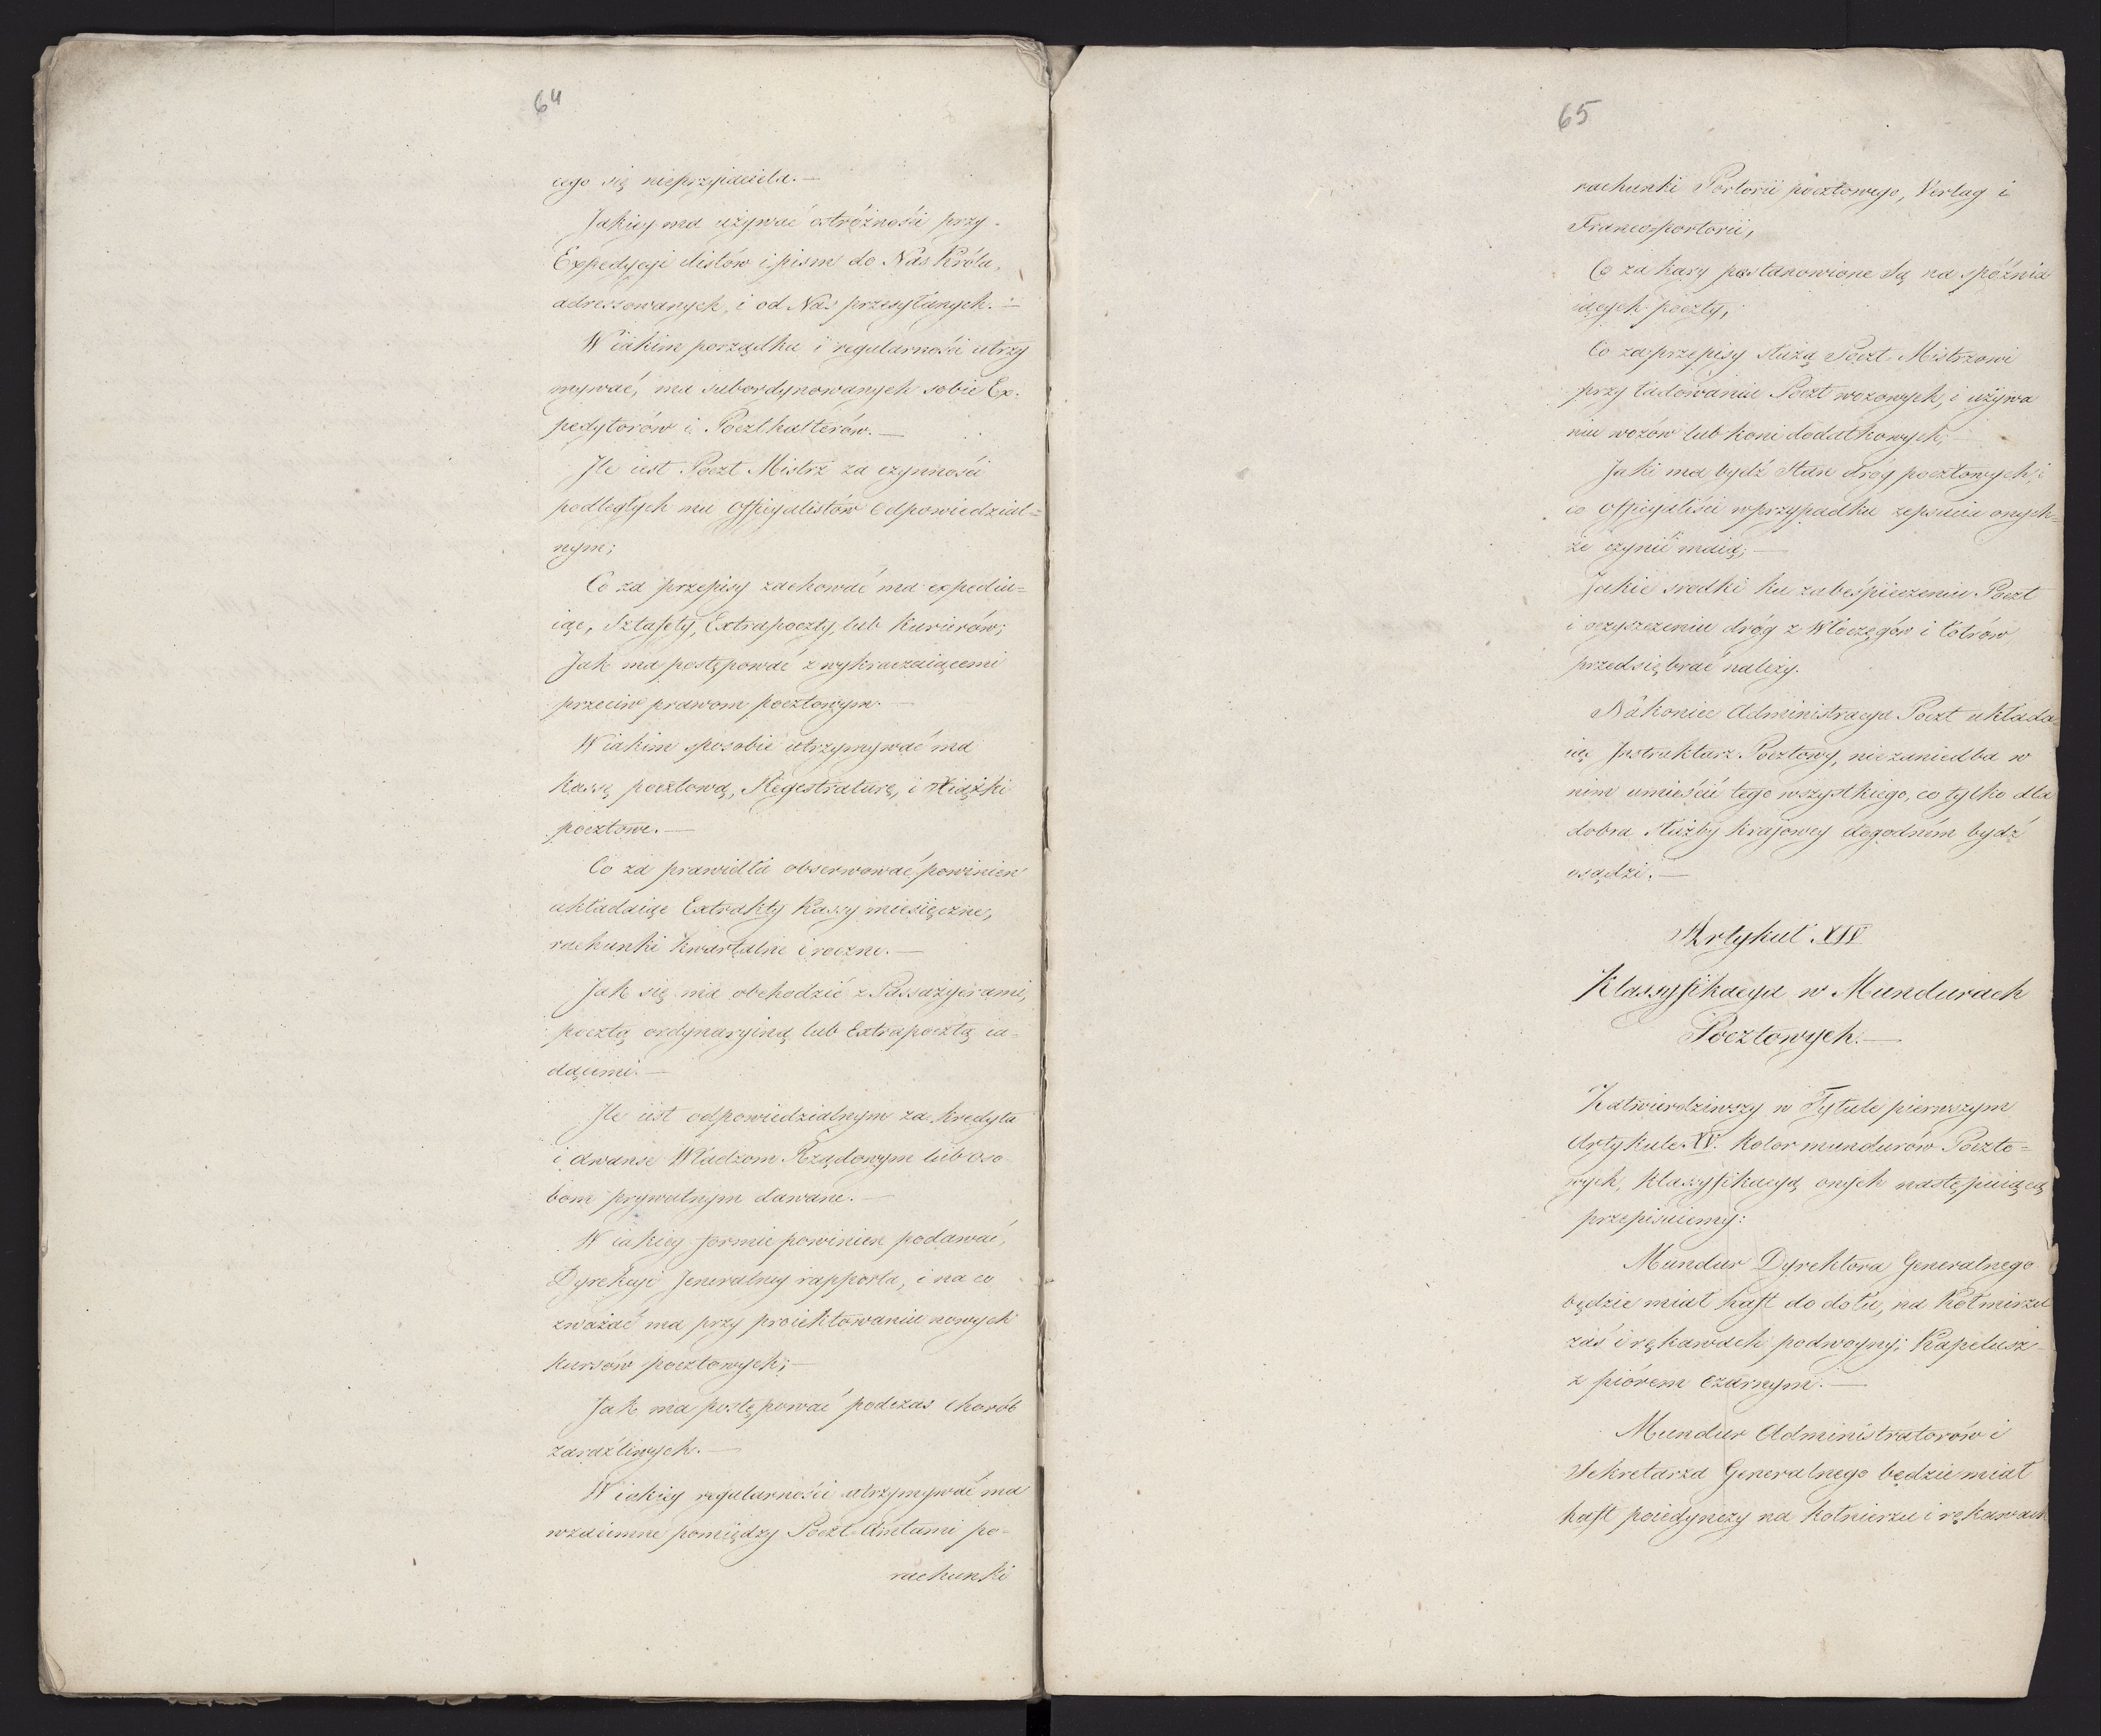 64
cego się nieprzyiaciela. —
Jakiey ma używać ostróżności przy
Expedycyi listów i pism do Nas Króla,
adressowanych, i od Nas przesyłanych. —
W iakim porządku i regularności utrzy
mywać, ma subordynowanych sobie Ex-
pedytorów i Poczthalterów. —
Jle iest Poczt Mistrz za czynności
podległych mu Officyalistów odpowiedzial=
nym;
Co za przepisy zachować ma expediu=
iąc, Sztafety, Extrapoczty, lub Kurierów;
Jak ma postępować z wykraczaiącemi
przeciw prawom pocztowym. —
W iakim sposobie utrzymywać ma
Kassę pocztową, Regestraturę, i Xiążki
pocztowe. —
Co za prawidła obserwować powinien
układaiąc Extrakty Kassy miesięczne,
rachunki Kwartalne i roczne. —
Jak się ma obchodzić z Passażyerami,
pocztą ordynaryiną lub Extrapocztą ia-
dącemi. —
Jle iest odpowiedzialnym za kredyta
i awanse Władzom Rządowym lub oso
bom prywatnym dawane. —
W iakiey formie powinien podawać,
Dyrekcyi Jeneralney rapporta, i na co
zważać ma przy proiektowaniu nowych
kursów pocztowych; —
Jak ma postępować podczas chorób
zaraźliwych. —
W iakiey regularności utrzymywać ma
wzaiemne pomiędzy Poczt-Amtami po-
rachunki
65
rachunki Portorii pocztowego, Verlag i
Francoportorii,
Co za kary postanowione są na spóźnia
iących poczty;
Co za przepisy służą Poczt-Mistrzowi
przy ładowaniu Poczt wozowych, i używa
niu wozów lub koni dodatkowych;
Jaki ma bydź stan dróg pocztowych, i
co Officyaliści w przypadku zepsucia onych=
że czynić maią; —
Jakie srodki ku zabespieczeniu Poczt
i oczyszczeniu dróg z Włóczęgów i łotrów
przedsiębrać należy.
Nakoniec Administracya Poczt układa=
iąc Jnstruktarz Pocztowy, niezaniedba w
nim umieścić tego wszystkiego, co tylko dla
dobra służby krajowey dogodném bydź
osądzi. —
Artykuł XIV
Klassyfikacya w Mundurach
Pocztowych. —
Zatwierdziwszy w Tytule pierwszym
Artykule XV. Kolor mundurów Poczto=
wych, klassyfikacyą onych następuiącą
przepisuiemy:
Mundur Dyrektora Generalnego
będzie miał haft do dołu, na Kołnierzu
zaś i rękawach podwoyny; Kapelusz
z piórem czarnym. —
Mundur Administratorów i
Sekretarza Generalnego będzie miał
haft poiedynczy na kołnierzu i rękawach